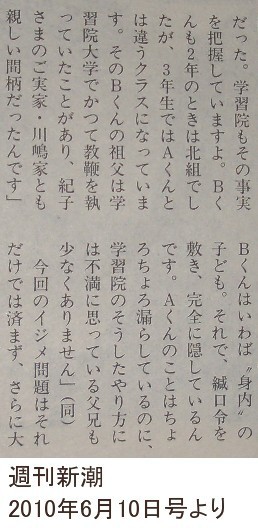 だった。学習院もその事実
を把握していますよ。Bく
んも2年のときは北組でし
たが、3年生ではAくんと
は違うクラスになっていま
す。そのBくんの祖父は学
習院大学でかつて教鞭を執
っていたことがあり、紀子
さまのご実家・川嶋家とも
親しい間柄だったんです」
Bくんはいわば〝身内〟の
子ども。それで、緘口令を
敷き、完全に隠しているん
です。Aくんのことはちょ
ろちょろ漏らしているのに、
学習院のそうしたやり方に
は不満に思っている父兄も
少なくありません」(同)
今回のイジメ問題はそれ
だけでは済まず、さらに大
週刊新潮
2010年6月10日号より